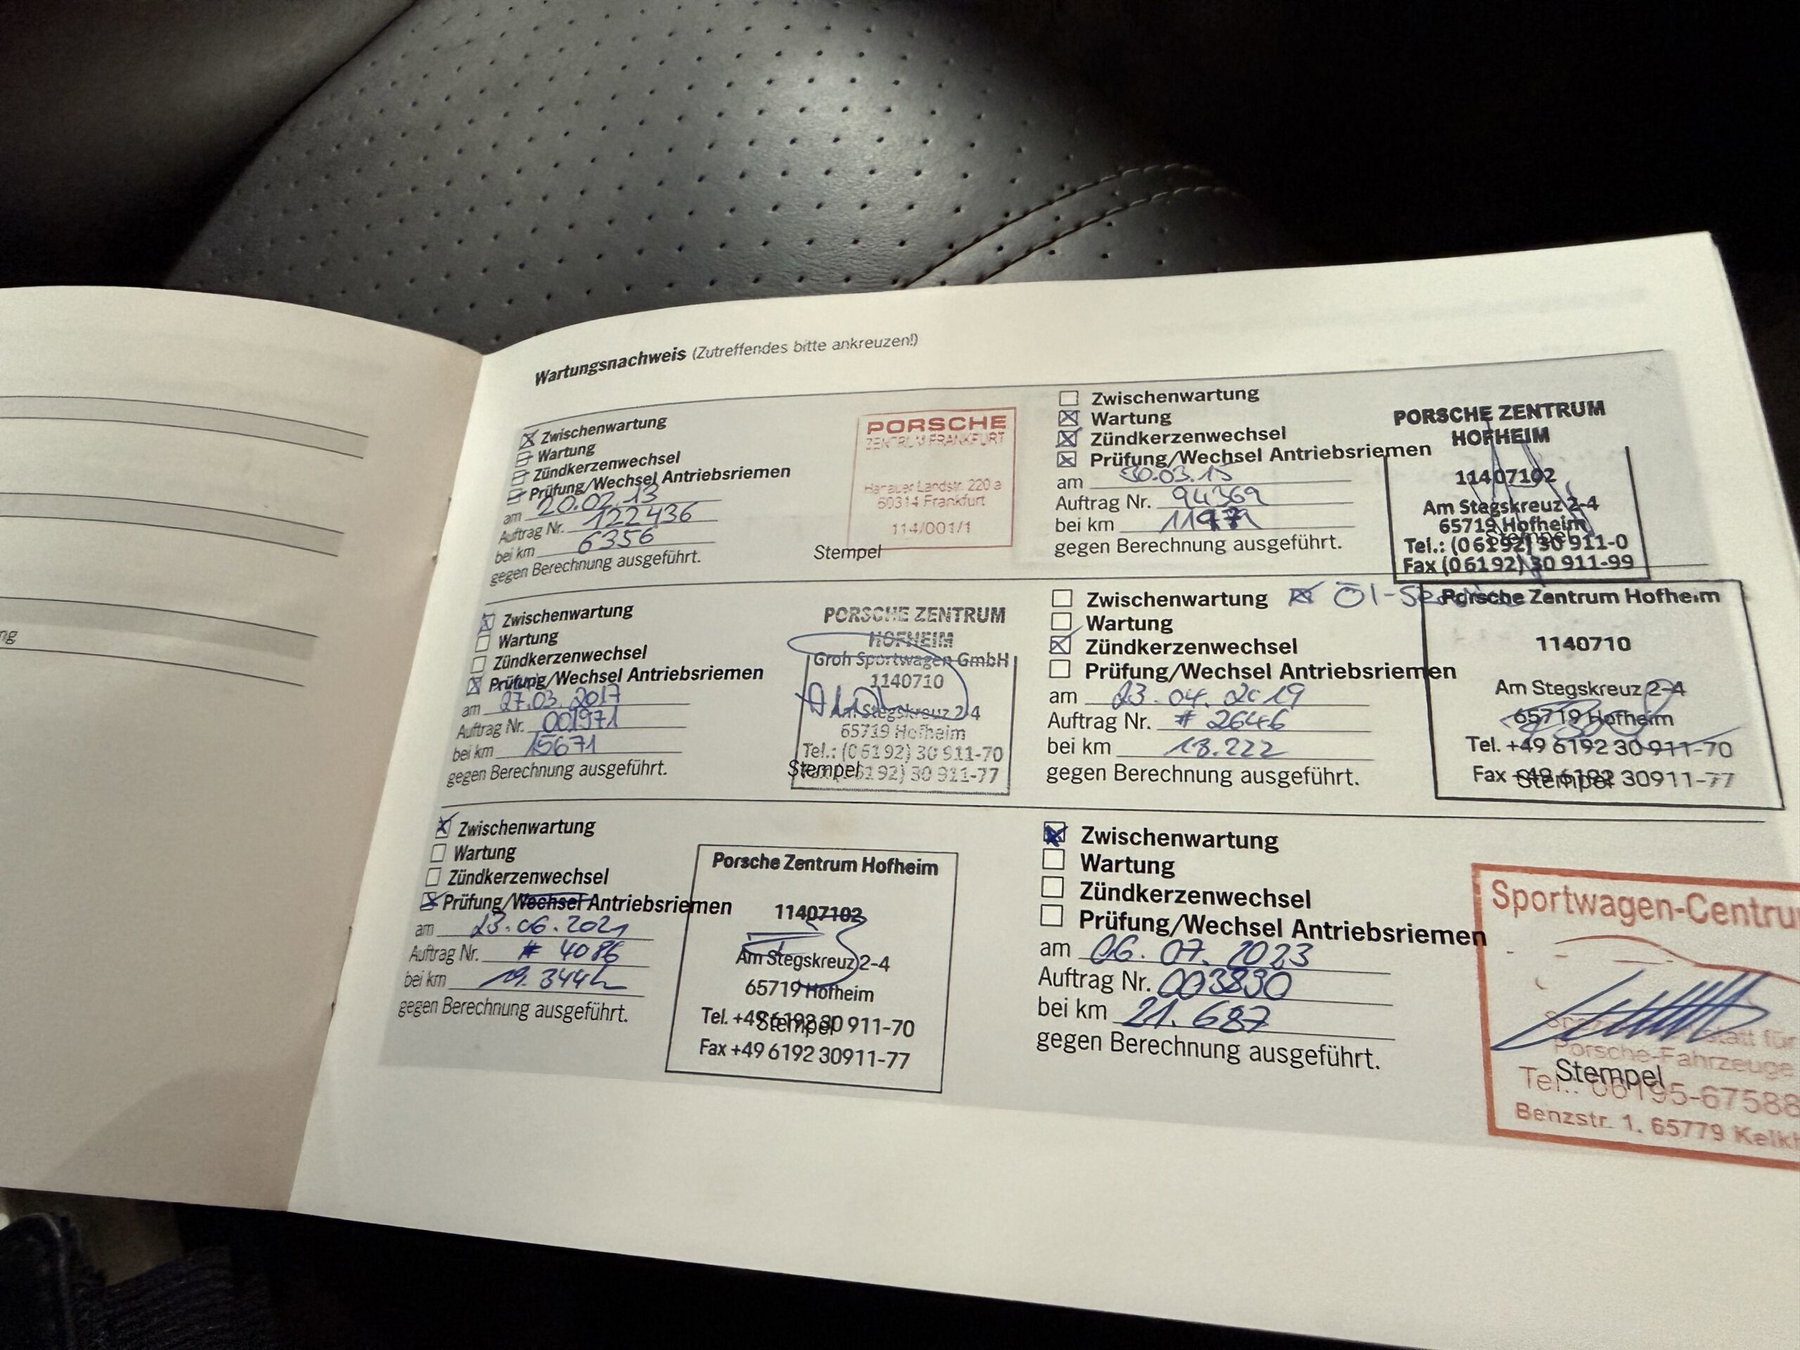 Wartungsnachweis (Zutreffendes bitte ankreuzen!)
Zwischenwartung
Wartung
Zündkerzenwechsel
Prüfung/Wechsel Antriebsriemen
am 20.02.13
Auftrag Nr. 122436
bei km 6356
gegen Berechnung ausgeführt.
PORSCHE
ZENTRUM FRANKFURT
Hanauer Landstr. 220 a
60314 Frankfurt
114/001/1
Stempel
Zwischenwartung
Wartung
Zündkerzenwechsel
Prüfung/Wechsel Antriebsriemen
am 30.03.15
Auftrag Nr. 94369
bei km
gegen Berechnung ausgeführt.
PORSCHE ZENTRUM
HOFHEIM
11407102
Am Stegskreuz 2-4
65719 Hofheim
Stempel
Tel.: (06192) 30 911-0
Fax (06192) 30 911-99
Zwischenwartung
Wartung
Zündkerzenwechsel
Prüfung/Wechsel Antriebsriemen
am 27.03.2017
Auftrag Nr. 001971
bei km 15671
gegen Berechnung ausgeführt.
PORSCHE ZENTRUM
HOFHEIM
Groh Sportwagen GmbH
1140710
Am Stegskreuz 2-4
65719 Hofheim
Tel.: (06192) 30 911-70
Stempel 30 911-77
Zwischenwartung
Wartung
Zündkerzenwechsel
Prüfung/Wechsel Antriebsriemen
am 23.04.2019
Auftrag Nr. # 2646
bei km 18.222
gegen Berechnung ausgeführt.
Porsche Zentrum Hofheim
1140710
Am Stegskreuz 2-4
65719 Hofheim
Tel. +49 6192 30 911-70
Fax +49 6192 30911-77
Stempel
Zwischenwartung
Wartung
Zündkerzenwechsel
Prüfung/Wechsel Antriebsriemen
am 23.06.2021
Auftrag Nr. # 4086
bei km 19.344
gegen Berechnung ausgeführt.
Porsche Zentrum Hofheim
11407102
Am Stegskreuz 2-4
65719 Hofheim
Tel. +49 6192 30 911-70
Stempel
Fax +49 6192 30911-77
Zwischenwartung
Wartung
Zündkerzenwechsel
Prüfung/Wechsel Antriebsriemen
am 06.07.2023
Auftrag Nr. 003830
bei km 21.687
gegen Berechnung ausgeführt.
Sportwagen-Centru
für
Porsche-Fahrzeuge
Stempel
Tel.: 06195-67588
Benzstr. 1, 65779 Kelkh
ng